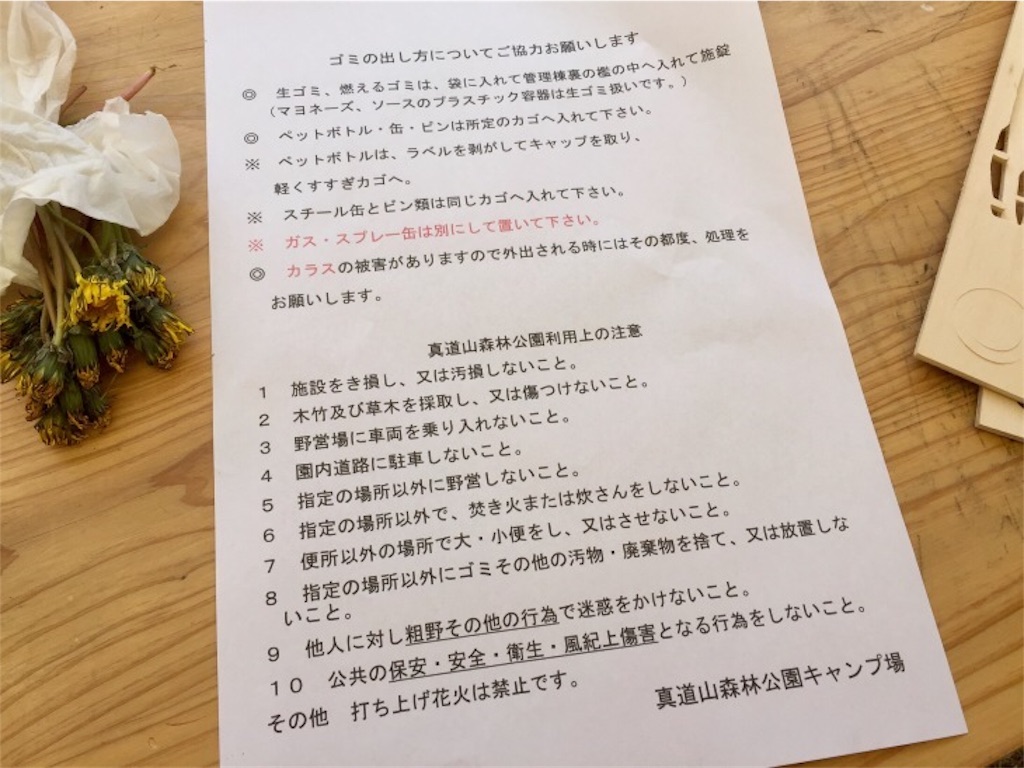 ゴミの出し方についてご協力お願いします
◎ 生ゴミ、燃えるゴミは、袋に入れて管理棟裏の檻の中へ入れて施錠
（マヨネーズ、ソースのプラスチック容器は生ゴミ扱いです。）
◎ ペットボトル・缶・ビンは所定のカゴへ入れて下さい。
※ ペットボトルは、ラベルを剥がしてキャップを取り、
軽くすすぎカゴへ。
※ スチール缶とビン類は同じカゴへ入れて下さい。
※ ガス・スプレー缶は別にして置いて下さい。
◎ カラスの被害がありますので外出される時にはその都度、処理を
お願いします。
真道山森林公園利用上の注意
1 施設をき損し、又は汚損しないこと。
2 木竹及び草木を採取し、又は傷つけないこと。
3 野営場に車両を乗り入れないこと。
4 園内道路に駐車しないこと。
5 指定の場所以外に野営しないこと。
6 指定の場所以外で、焚き火または炊さんをしないこと。
7 便所以外の場所で大・小便をし、又はさせないこと。
8 指定の場所以外にゴミその他の汚物・廃棄物を捨て、又は放置しな
いこと。
9 他人に対し粗野その他の行為で迷惑をかけないこと。
10 公共の保安・安全・衛生・風紀上傷害となる行為をしないこと。
その他 打ち上げ花火は禁止です。
真道山森林公園キャンプ場